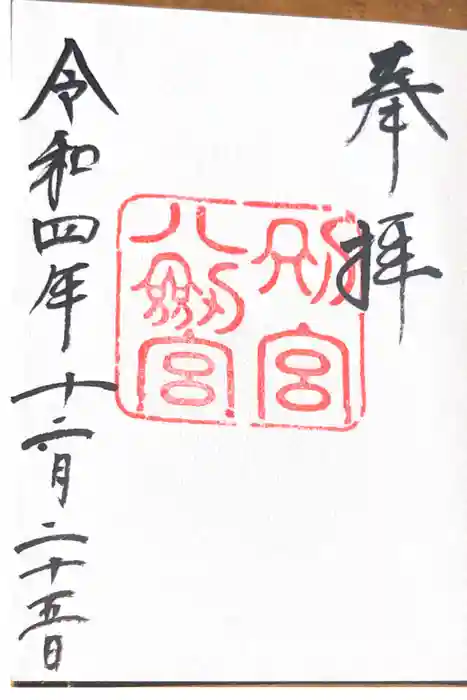 奉拝
別宮
八剱宮
令和四年十二月二十五日